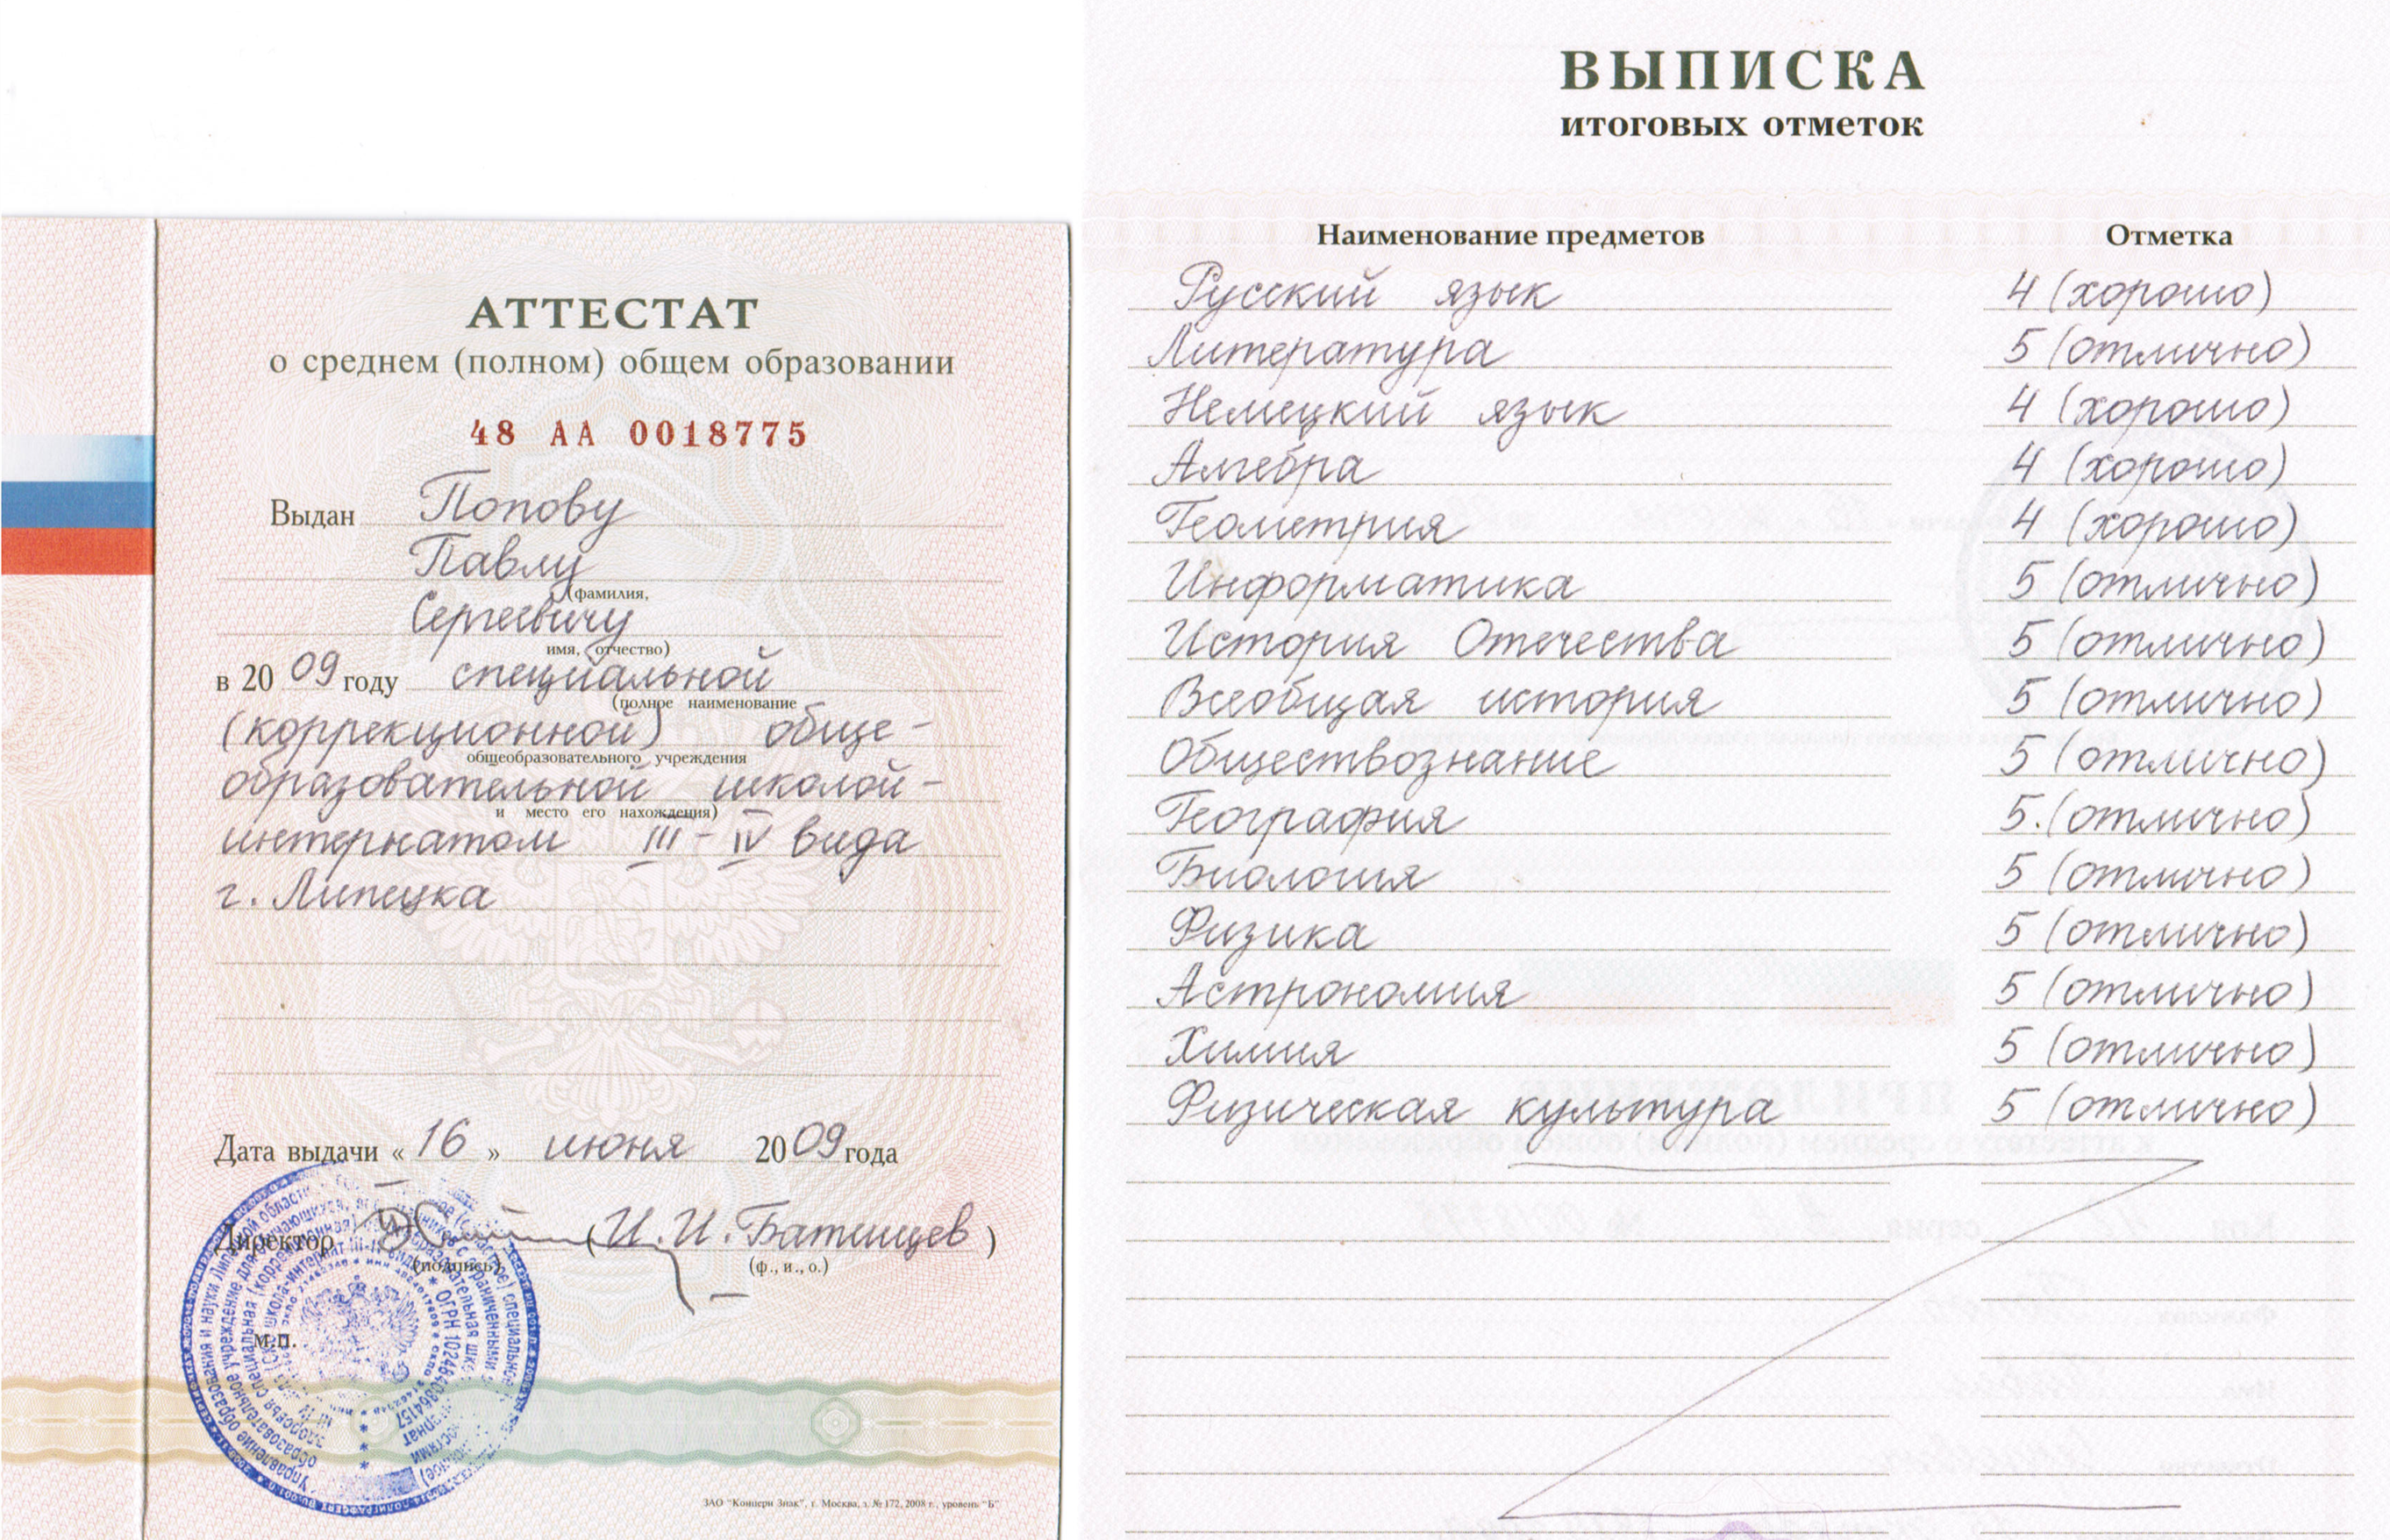 АТТЕСТАТ
о среднем (полном) общем образовании
48 АА 0018775
Выдан Попову
Павлу
(фамилия,
Сергеевичу
имя, отчество)
в 2009 году специальной
(полное наименование
(коррекционной) обще-
общеобразовательного учреждения
образовательной школой-
и место его нахождения)
интернатом III-IV вида
г. Липецка
Дата выдачи «16» июня 2009 года
Директор (И.И. Батищев)
(подпись) (ф., и., о.)
М.П.
ОГРН 1024840864157
ЗАО "Концерн Знак", г. Москва, з. № 172, 2008 г., уровень "Б"
ВЫПИСКА
итоговых отметок
Наименование предметов Отметка
Русский язык 4 (хорошо)
Литература 5 (отлично)
Немецкий язык 4 (хорошо)
Алгебра 4 (хорошо)
Геометрия 4 (хорошо)
Информатика 5 (отлично)
История Отечества 5 (отлично)
Всеобщая история 5 (отлично)
Обществознание 5 (отлично)
География 5. (отлично)
Биология 5 (отлично)
Физика 5 (отлично)
Астрономия 5 (отлично)
Химия 5 (отлично)
Физическая культура 5 (отлично)